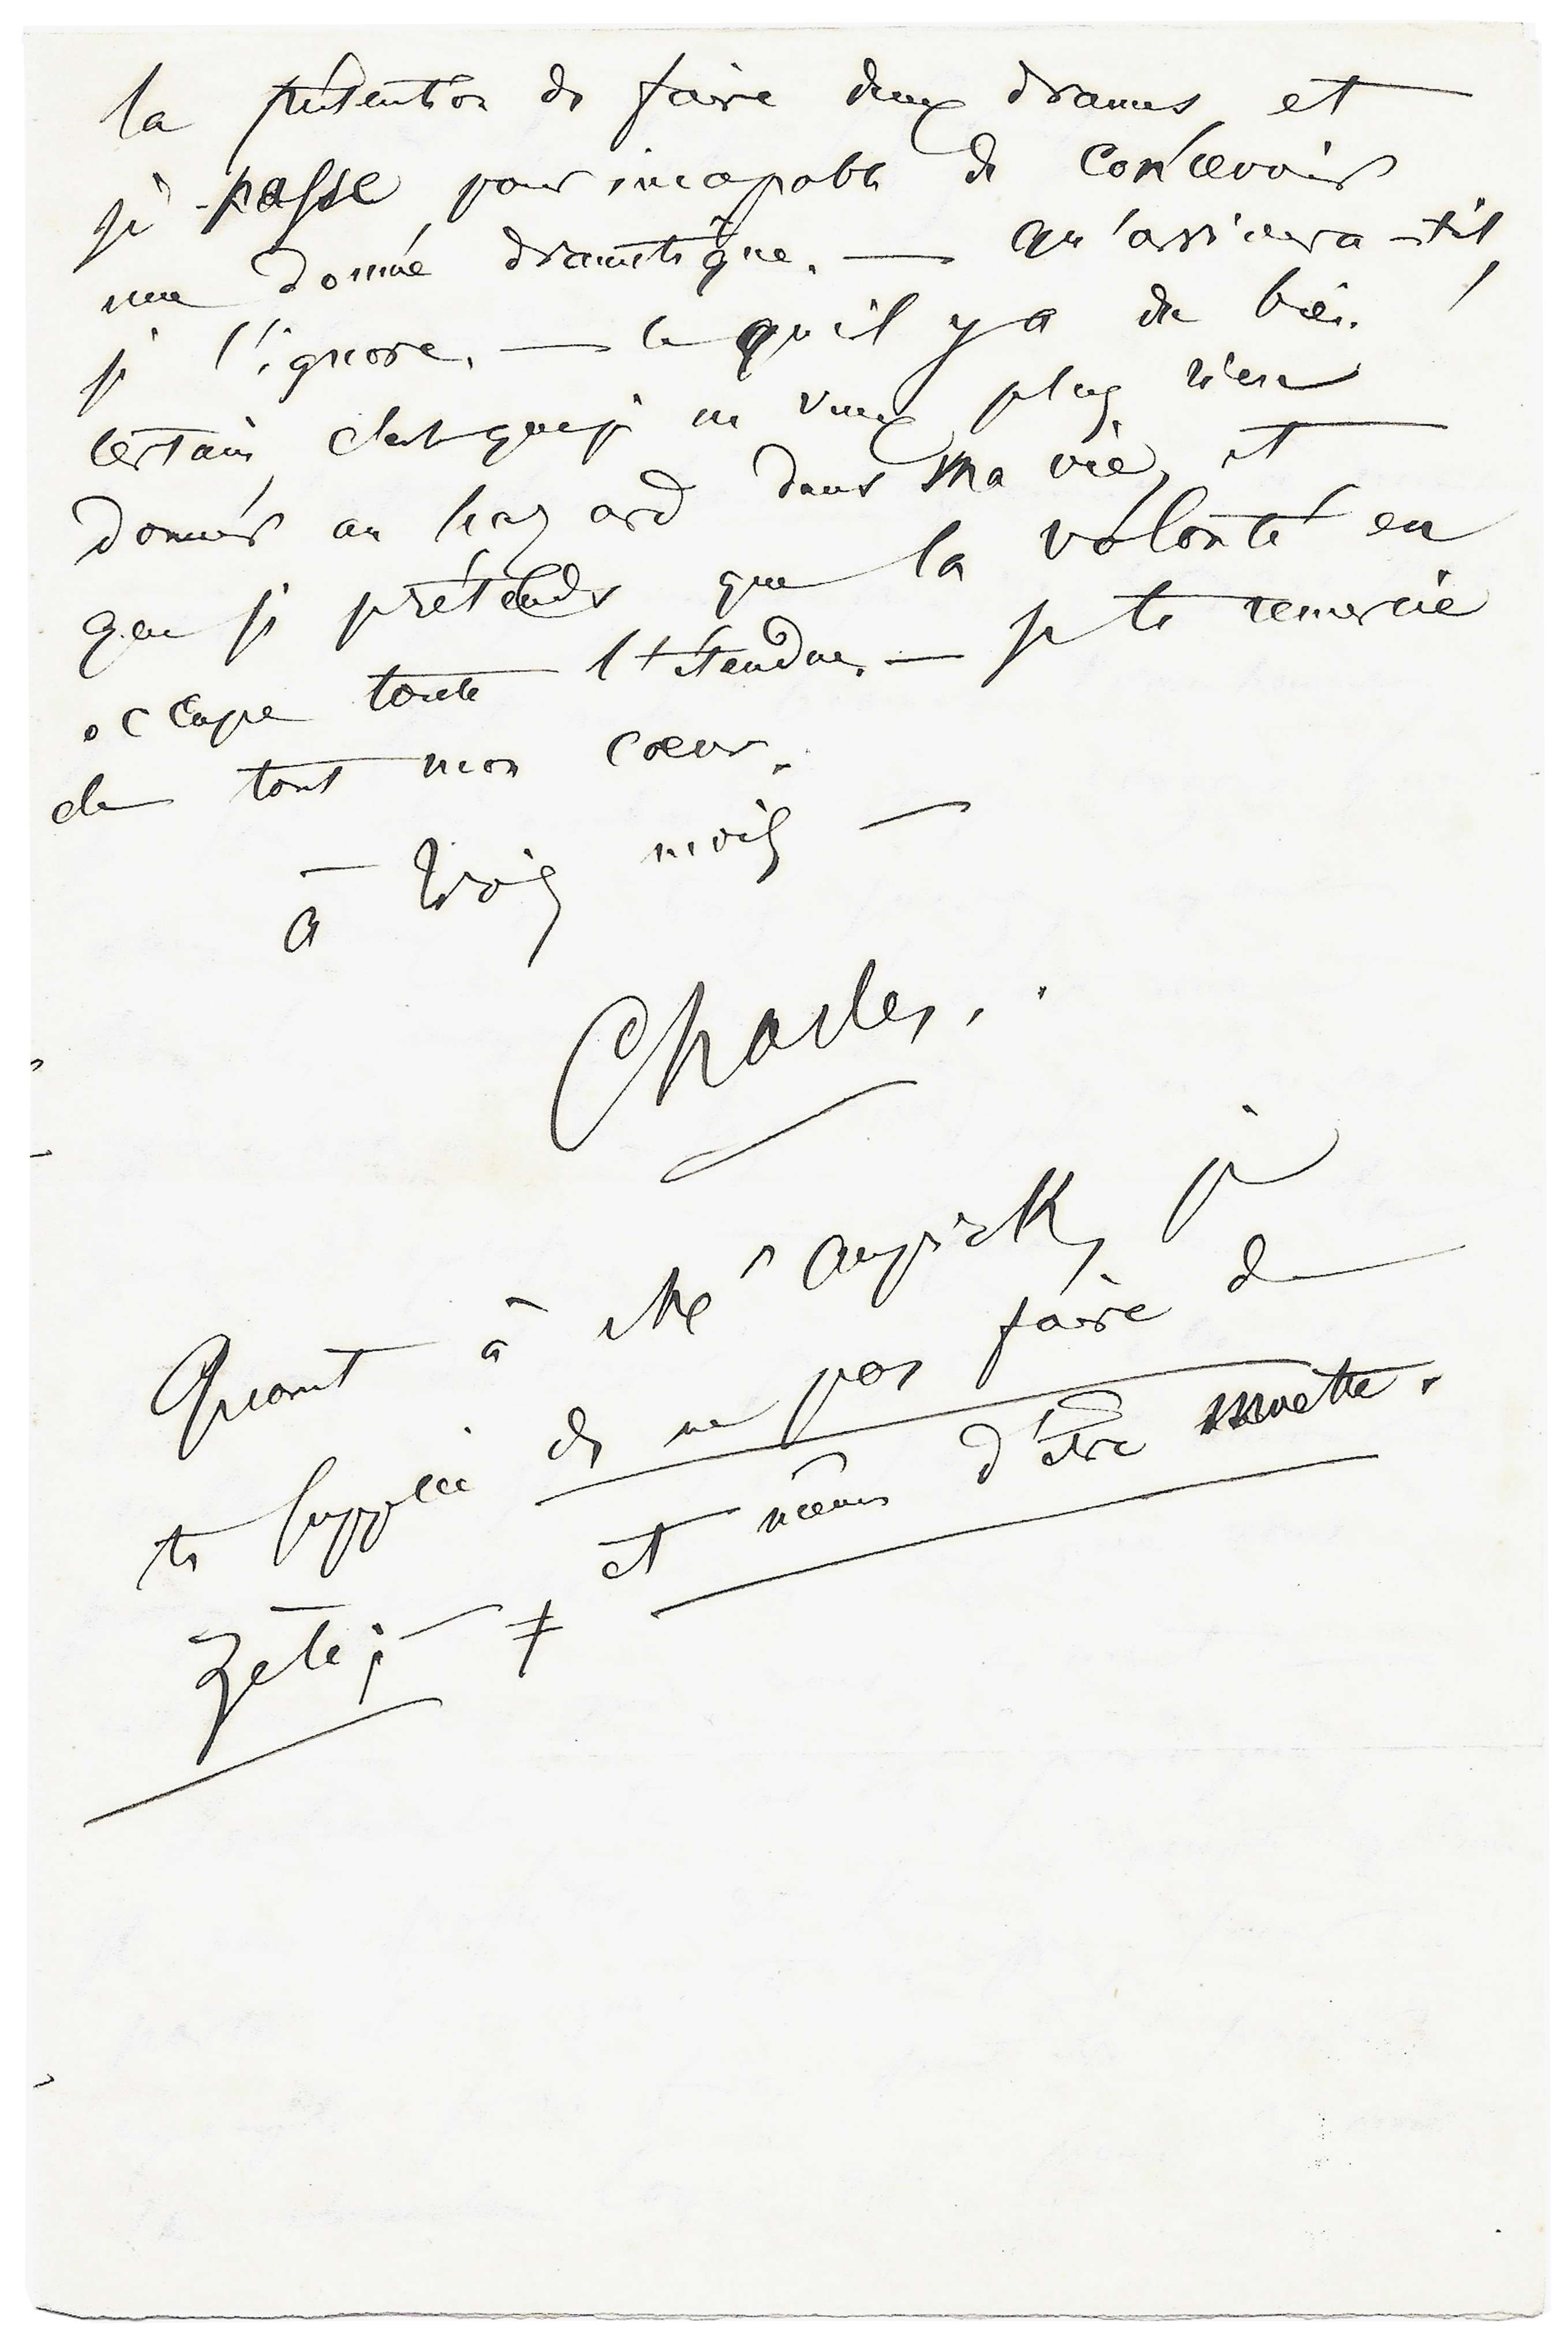 la prétention de faire deux drames, et
je passe pour incapable de concevoir
une donnée dramatique. — qu'arrivera-t-il,
je l'ignore. — ce qu'il y a de bien
certain, c'est que je ne veux plus rien
donner au hazard dans ma vie, et
que je prétends que la volonté en
occupe toute l'étendue. — je te remercie
de tout mon cœur.
à trois mois —
Charles.
Quant à Mr Aupick, je
te supplie de ne pas faire de
zèle; — et même d'être muette.